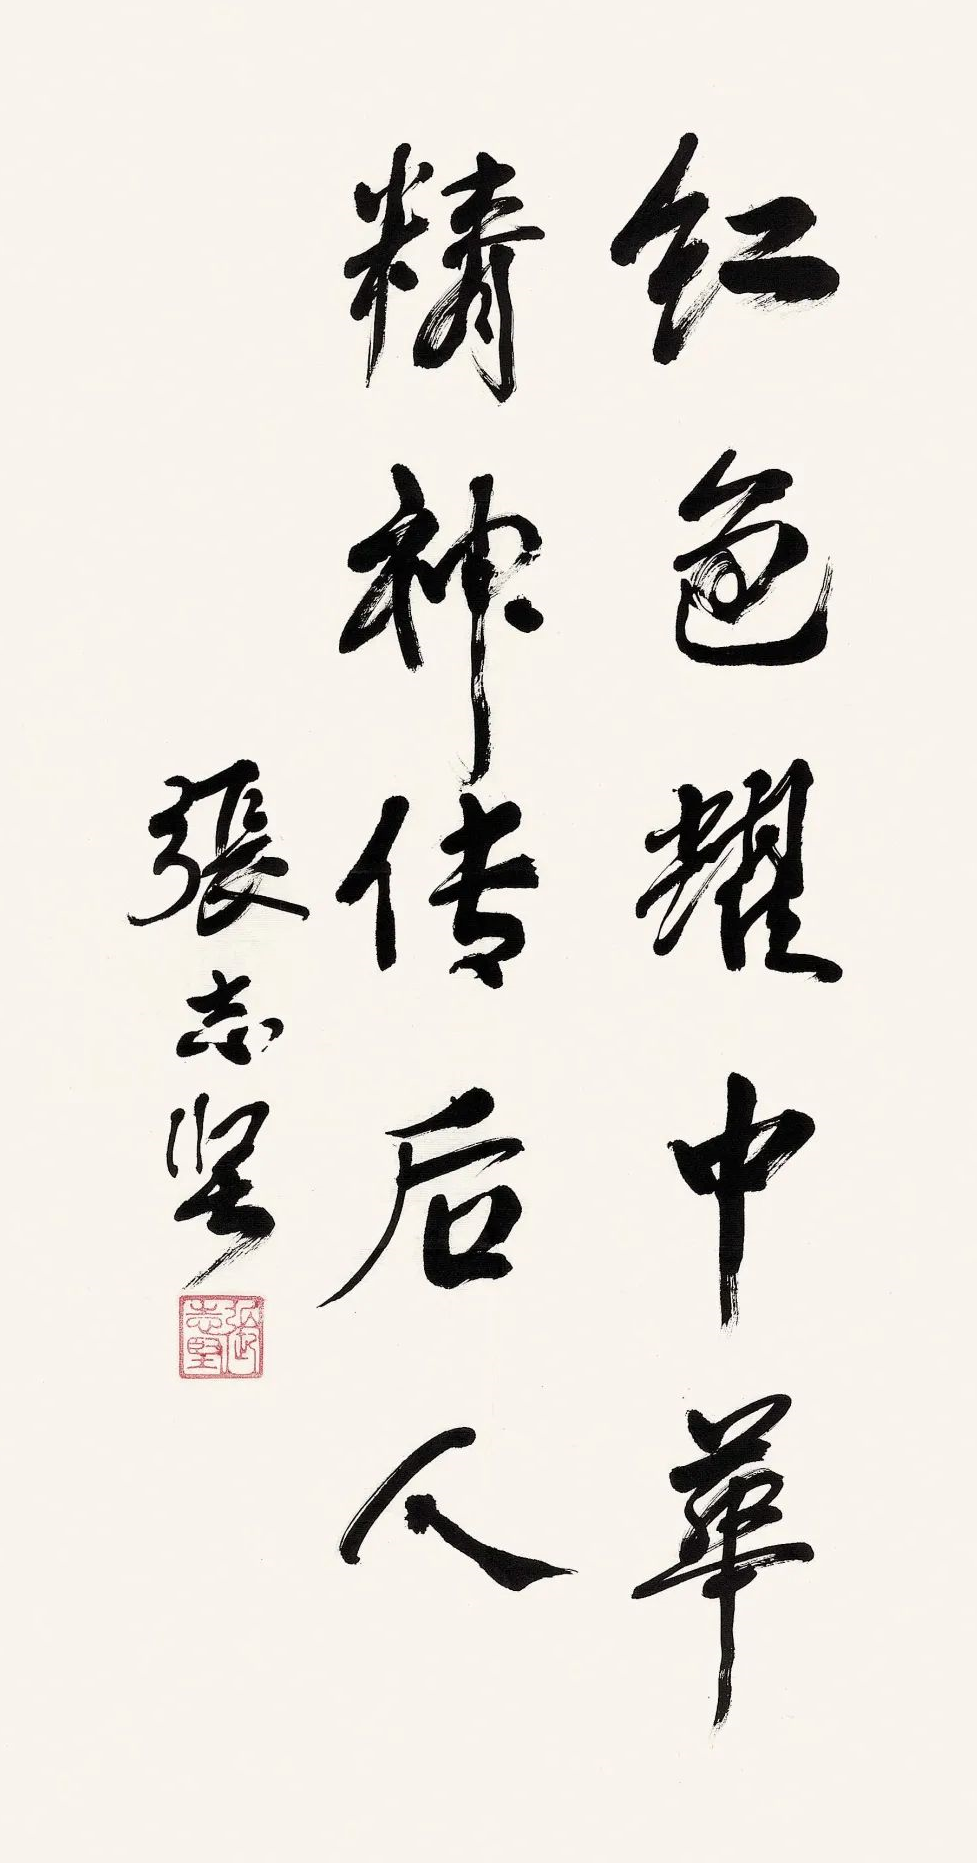 红色耀中華
精神传后人
張志坚
張志堅